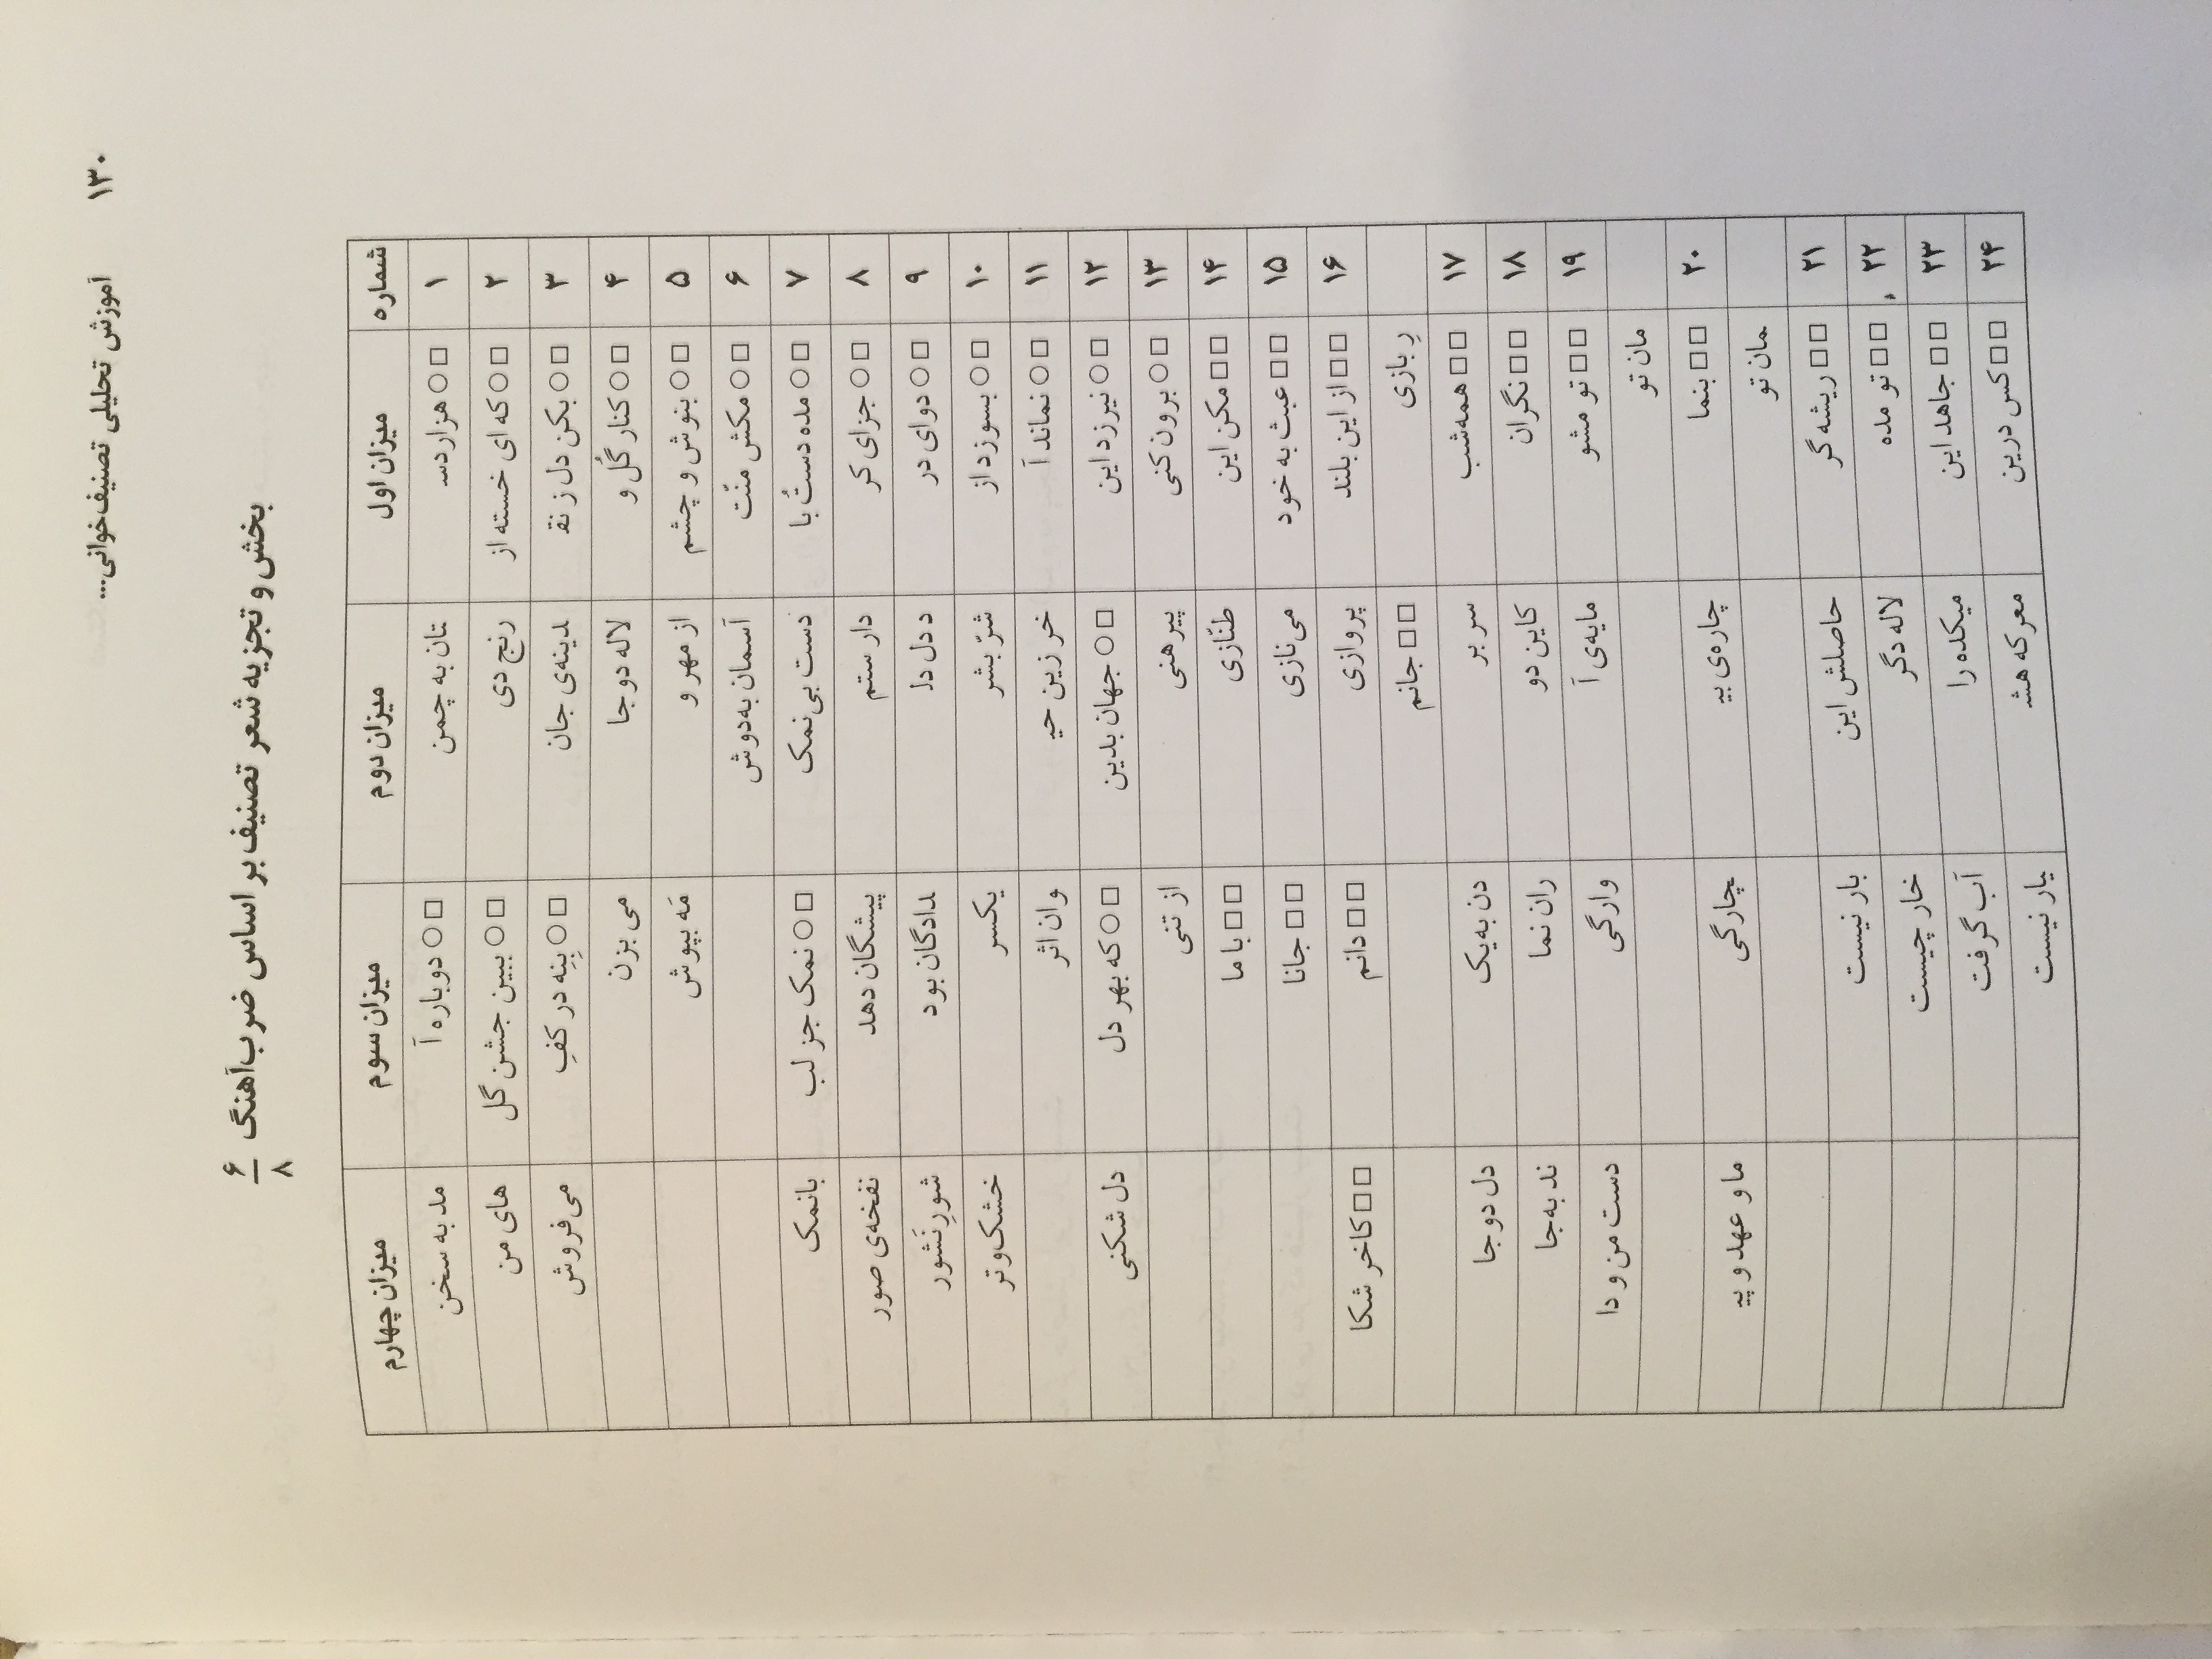 ۱۳۰ آموزش تحلیلی تصنیف‌خوانی...
بخش و تجزیه شعر تصنیف بر اساس ضرب‌آهنگ ۶/۸
شماره میزان اول میزان دوم میزان سوم میزان چهارم
۱ □○هزار دسـ تان به چمن □○دوباره آ مد به سخن
۲ □○که ای خسته از رنج دی □○ببین جشن گل های من
۳ □○بکن دل ز نقـ ـدینه‌ی جان □○بِنِه در کفِ می فروش
۴ □○کنار گُل و لاله دو جا می بزن
۵ □○بنوش و چشم از مهر و مَه بپوش
۶ □○مکش منّت آسمان به‌دوش
۷ □○مده دستُ با دست بی‌نمک □○نمک جز لب بانمک
۸ □○جزای کر دار ستم پیشگان دهد نفخه‌ی صور
۹ □○دوای در د دل دلـ ـدادگان بود شورِ نَشور
۱۰ □○بسوزد از شرّ بشر یکسر خشک‌و‌تر
۱۱ □○نماند آ خر زین حیـ وان اثر
۱۲ □○نیرزد این □○جهان بدین □○که بهر دل دل شکنی
۱۳ □○برون کنی پیرهنی از تنی
۱۴ □□مکن این طنّازی □□با ما
۱۵ □□عبث به خود می‌نازی □□جانا
۱۶ □□از این بلند پروازی □□دانم □□کاخر شکا
رِ بازی □□جانم
۱۷ □□همه‌شب سر بر دن به یک دل دو جا
۱۸ □□نگران کاین دو ران نما ند به‌جا
۱۹ □□تو مشو مایه‌ی آ وارگی دست من و دا
مان تو
۲۰ □□بنما چاره‌ی بیـ ـچارگی ما و عهد و پیـ
ـمان تو
۲۱ □□ریشه گر حاصلش این بار نیست
۲۲ □□تو مده لاله دگر خار چیست
۲۳ □□جاهد این میکده را آب گرفت
۲۴ □□کس درین معرکه هشـ ـیار نیست